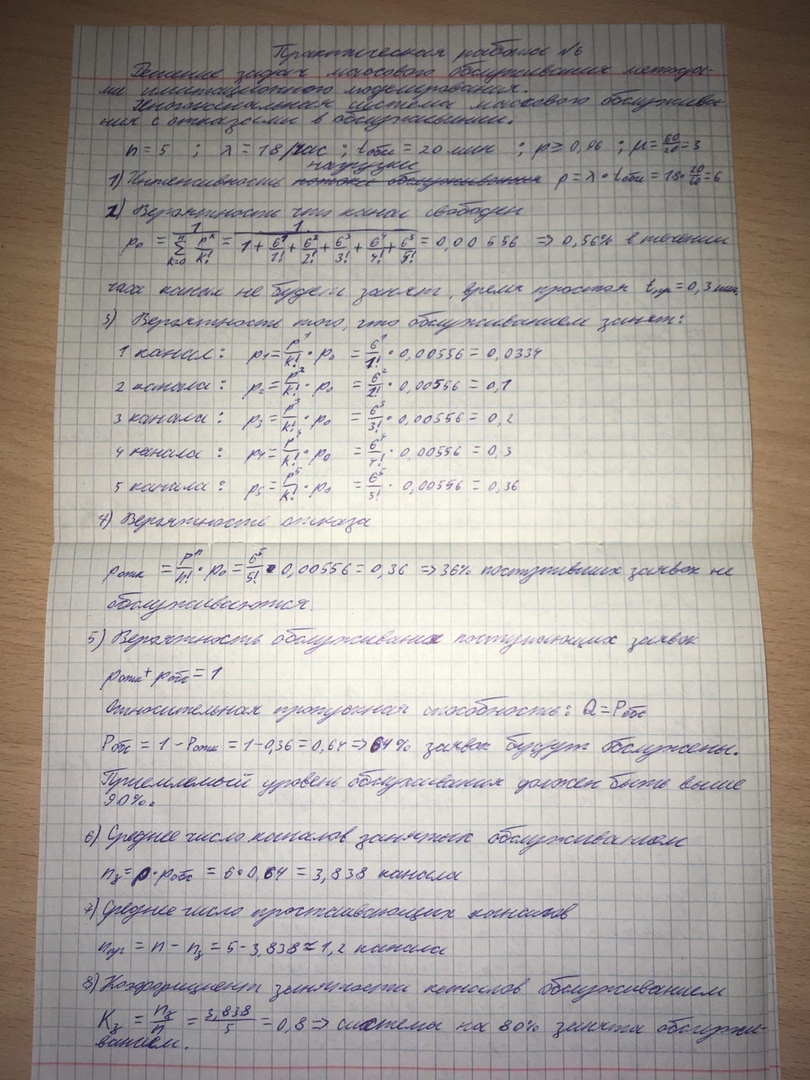 Практическая работа №6
Решение задач массового обслуживания метода-
ми имитационного моделирования.
Многоканальная система массового обслужива-
ния с отказами в обслуживании.
n = 5 ; λ = 18/час ; tобсл = 20 мин ; p ≥ 0,96 ; μ = 60/20 = 3
нагрузки
1) Интенсивность потока обслуживания ρ = λ • tобсл = 18 • 20/60 = 6
2) Вероятность что канал свободен
p₀ = 1/(∑ⁿₖ₌₀ ρᵏ/k!) = 1/(1 + 6¹/1! + 6²/2! + 6³/3! + 6⁴/4! + 6⁵/5!) = 0,00556 => 0,56% в течении
часа канал не будет занят, время простоя tпр = 0,3 мин.
3) Вероятность того, что обслуживанием занят:
1 канал : p₁ = ρ¹/k! • p₀ = 6¹/1! • 0,00556 = 0,0334
2 канала : p₂ = ρ²/k! • p₀ = 6²/2! • 0,00556 = 0,1
3 канала : p₃ = ρ³/k! • p₀ = 6³/3! • 0,00556 = 0,2
4 канала : p₄ = ρ⁴/k! • p₀ = 6⁴/4! • 0,00556 = 0,3
5 канала : p₅ = ρ⁵/k! • p₀ = 6⁵/5! • 0,00556 = 0,36
4) Вероятность отказа
pотк = ρⁿ/n! • p₀ = 6⁵/5! • 0,00556 = 0,36 => 36% поступивших заявок не
обслуживаются.
5) Вероятность обслуживания поступающих заявок
pотк + pобс = 1
Относительная пропускная способность: Q = Pобс
Pобс = 1 - Pотк = 1 - 0,36 = 0,64 => 64% заявок будут обслужены.
Приемлемый уровень обслуживания должен быть выше
90%.
6) Среднее число каналов занятых обслуживанием
nз = ρ • pобс = 6 • 0,64 = 3,838 канала
7) Среднее число простаивающих каналов
nпр = n - nз = 5 - 3,838 ≈ 1,2 канала
8) Коэффициент занятости каналов обслуживанием
Kз = nз/n = 3,838/5 = 0,8 => системы на 80% занята обслужи-
ванием.